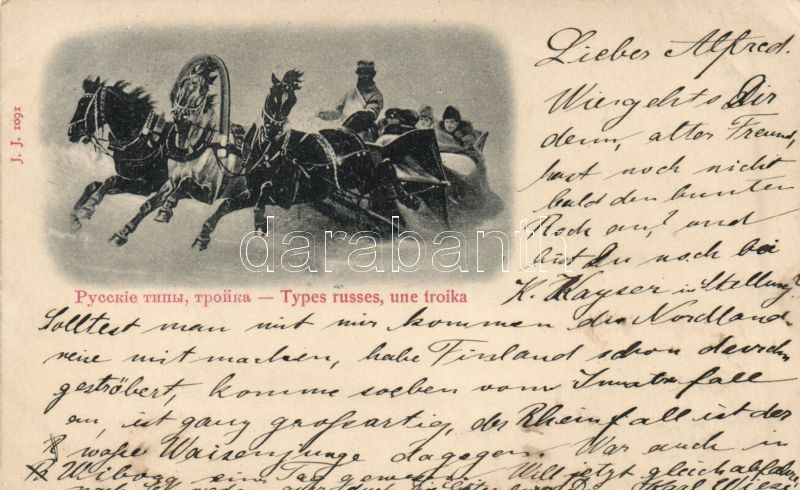 J. J. 1091
Lieber Alfred.
Wie gehts Dir
denn, alter Freund,
hast noch nicht
bald den bunten
Rock an? und
bist Du noch bei
K. Kayser in Stellung?
darabanth.com
Русскіе типы, тройка — Types russes, une troika
Solltest man mit mir kommen die Nordland-
reise mitmachen, habe Finland schon durch
geströbert, komme soeben vom Imatrafall
an, ist ganz grofsartig, der Rheinfall ist der
Waisenjunge dagegen. War auch in
Wiborg einen Tag gewesen. Will jetzt gleich